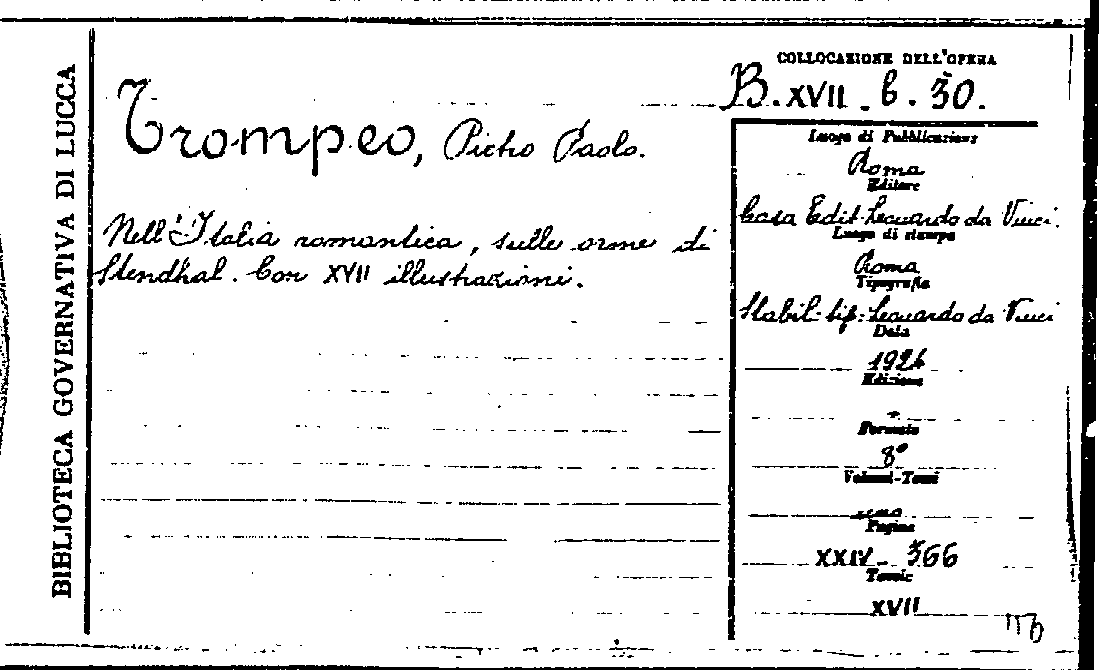 BIBLIOTECA GOVERNATIVA DI LUCCA
Trompeo, Pietro Paolo.
Nell'Italia romantica, sulle orme di
Stendhal. Con XVII illustrazioni.
COLLOCAZIONE DELL'OPERA
B. XVII. 6. 30.
Luogo di Pubblicazione
Roma
Editore
Casa Edit. Leonardo da Vinci.
Luogo di stampa
Roma
Tipografia
Stabil. tip. Leonardo da Vinci
Data
1924
Edizione
Formato
8°
Volumi-Tomi
uno
Pagine
XXIV - 366
Tavole
XVII